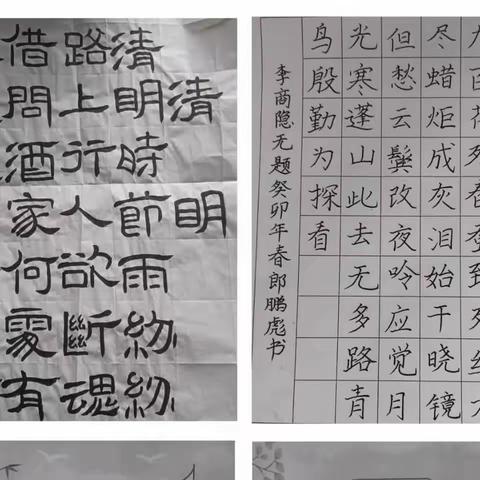 清明
清明時節雨紛紛
路上行人欲斷魂
借問酒家何處有
力百花残春蚕到死丝方
尽蜡炬成灰泪始干晓镜
但愁云鬓改夜吟应觉月
光寒蓬山此去无多路青
鸟殷勤为探看
李商隐无题癸卯年春郎鹏彪书